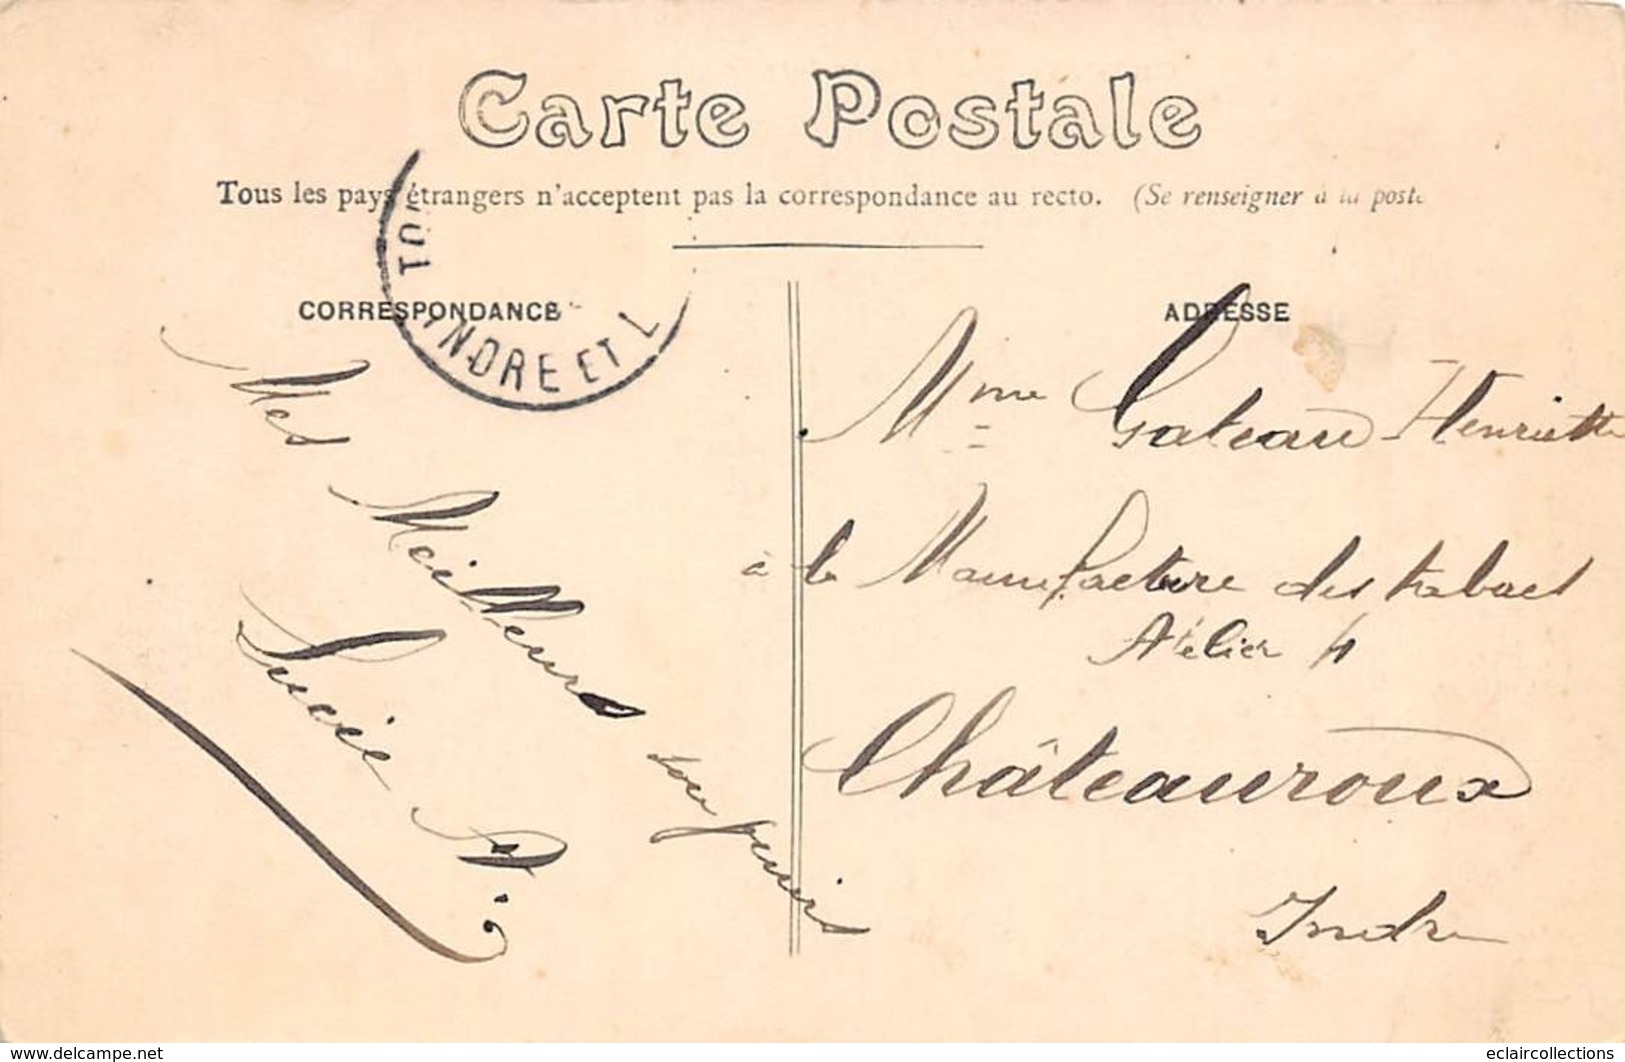 Carte Postale
Tous les pays étrangers n'acceptent pas la correspondance au recto. (Se renseigner à la poste
TOU
INDRE ET L
CORRESPONDANCE
Mes Meilleurs souvenirs
Lucie
ADRESSE
Mme Gateau Henriette
à la Manufacture des tabacs
Atelier 4
Châteauroux
Indre
www.delcampe.net
eclaircollections